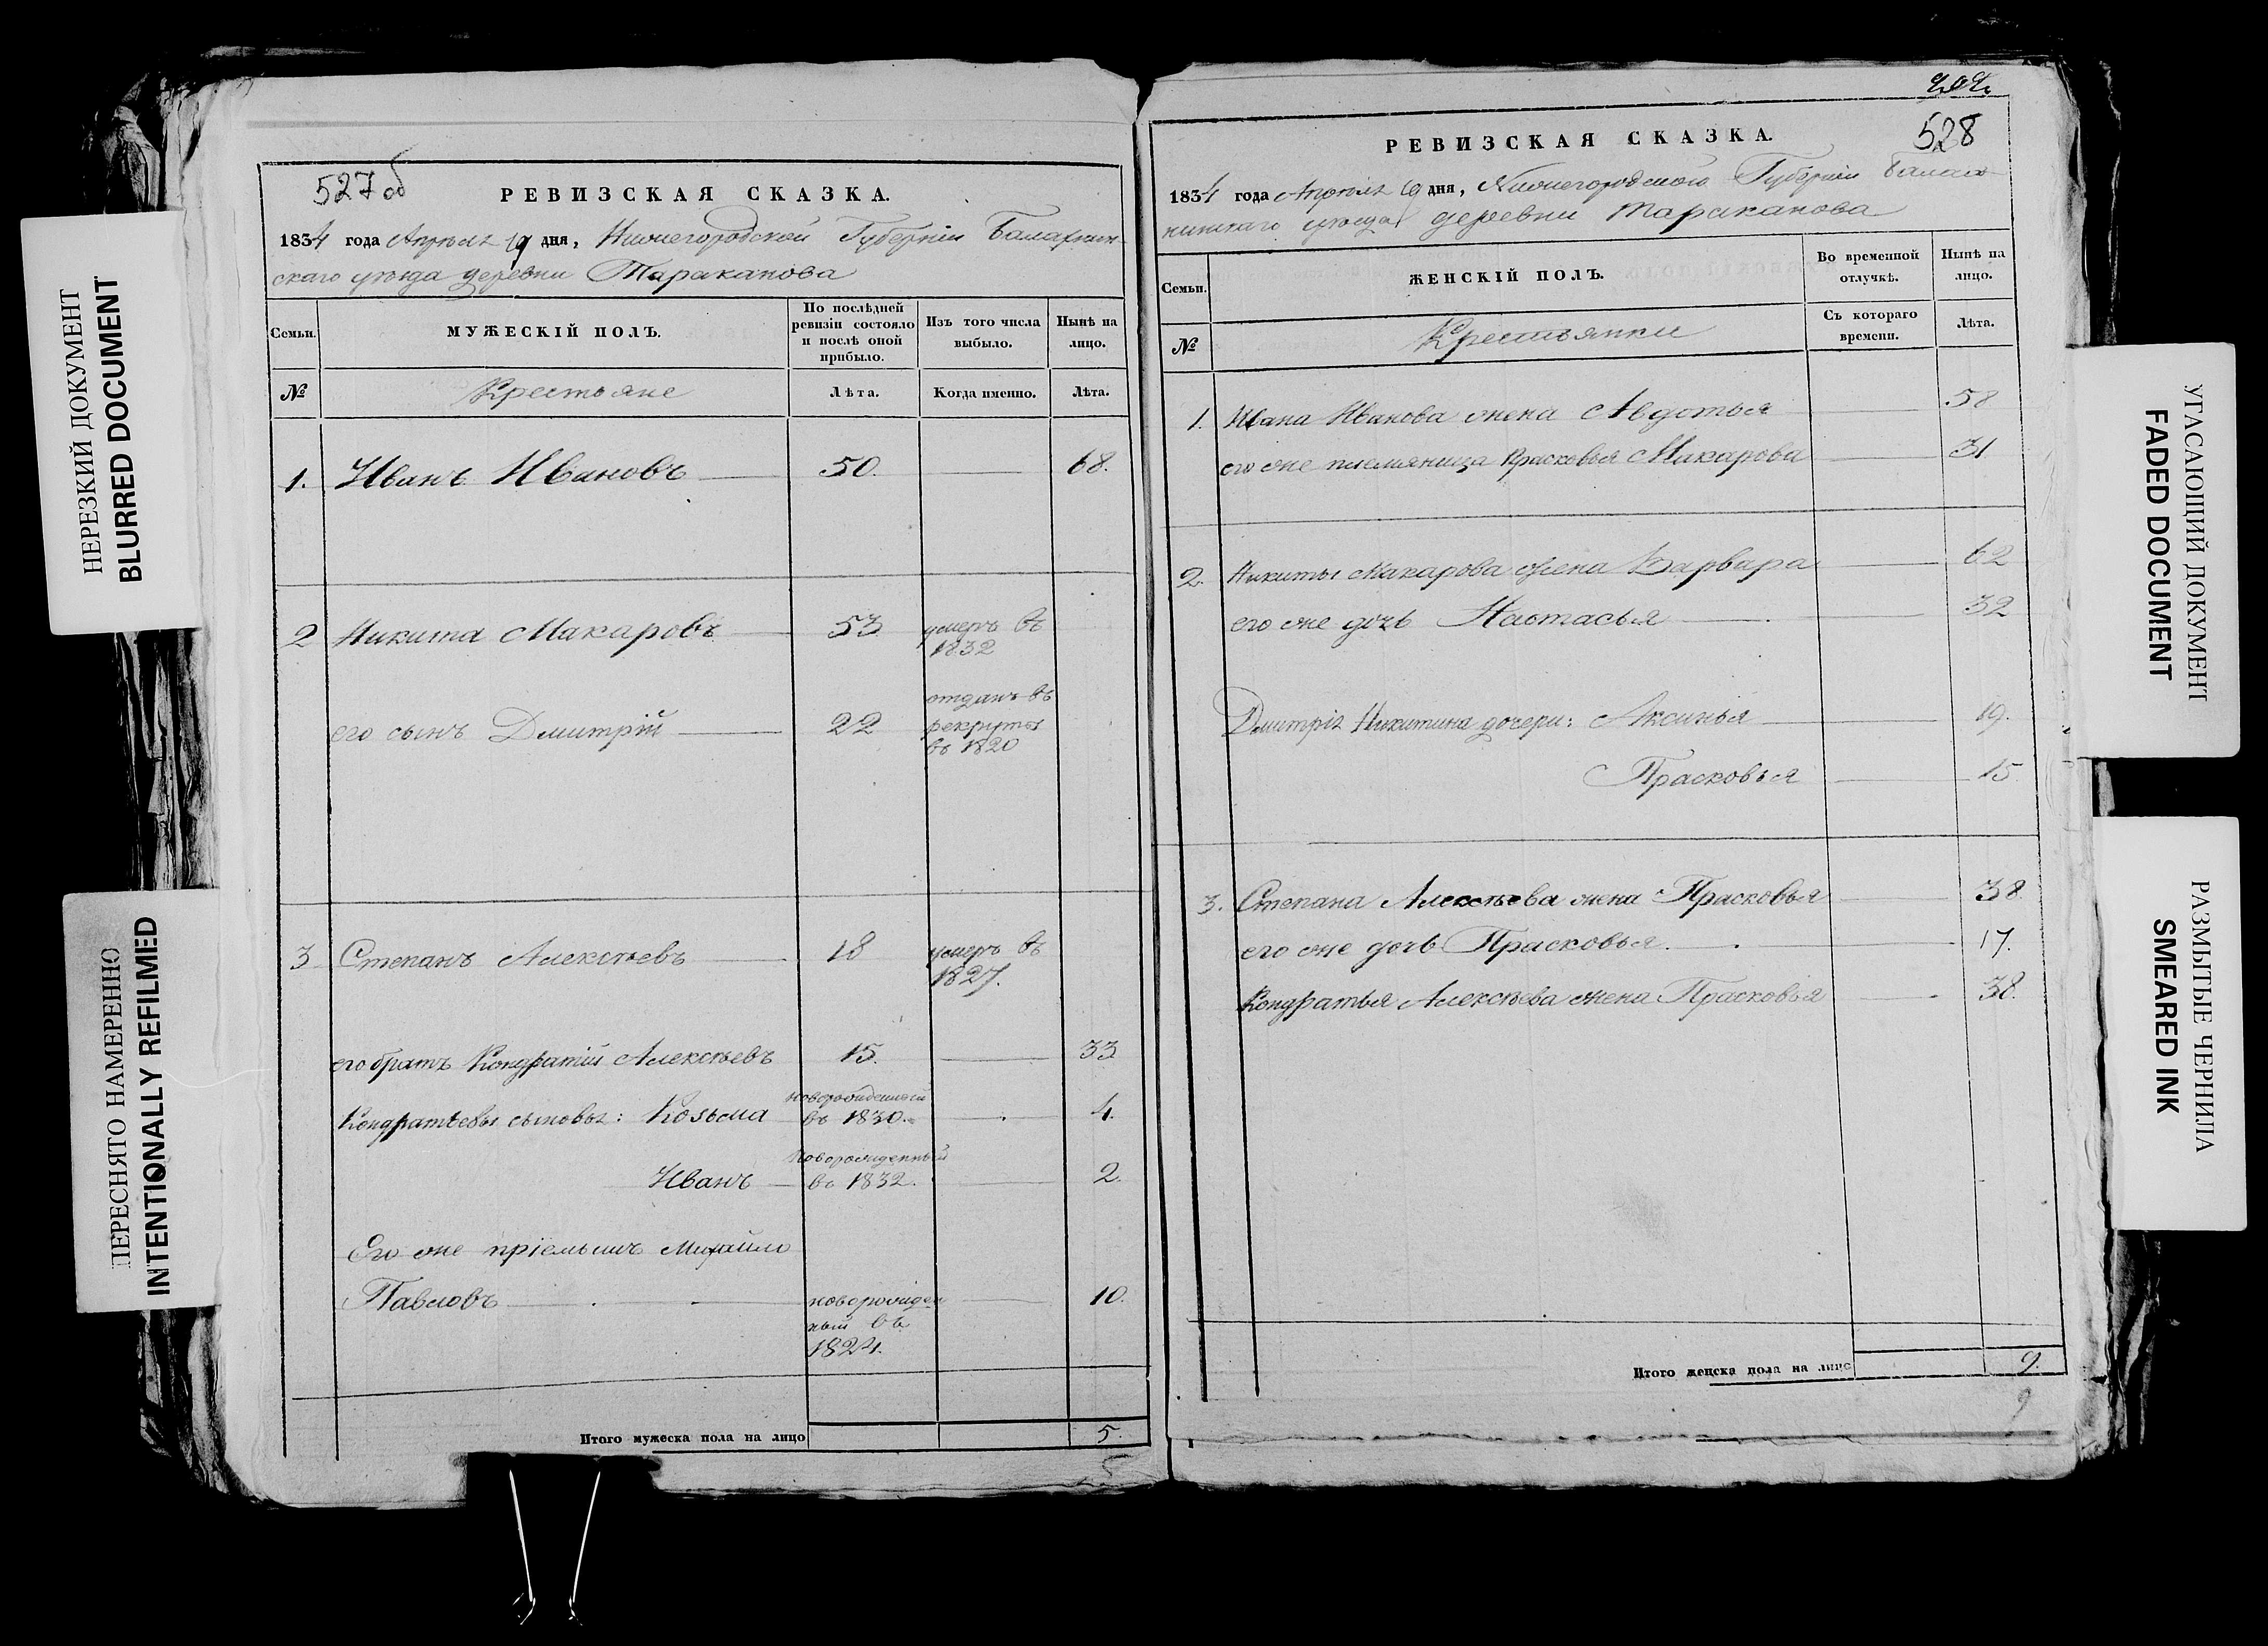 НЕРЕЗКИЙ ДОКУМЕНТ
BLURRED DOCUMENT
ПЕРЕСНЯТО НАМЕРЕННО
INTENTIONALLY REFILMED
527 об
РЕВИЗСКАЯ СКАЗКА.
1834 года Апрѣля 19 дня, Нижегородской Губерніи Балахнин-
скаго уѣзда деревни Тараканова
Семьи.
МУЖЕСКІЙ ПОЛЪ.
По послѣдней ревизіи состояло и послѣ оной прибыло.
Изъ того числа выбыло.
Нынѣ на лицо.
№ Крестьяне Лѣта. Когда именно. Лѣта.
1. Иванъ Ивановъ 50. 68.
2 Никита Макаровъ 53 умеръ въ
1832
его сынъ Дмитрій 22 отданъ въ
рекруты
въ 1820
3 Степанъ Алексѣевъ 18 умеръ въ
1827.
его братъ Кондратій Алексѣевъ 15. 33
Кондратьевы сыновья: Козьма новорожденный
въ 1830. 4.
Иванъ новорожденный
въ 1832. 2.
Его же пріемышъ Михайло
Павловъ новорожден
ный въ
1824. 10.
Итого мужеска пола на лицо 5.
5
528
РЕВИЗСКАЯ СКАЗКА.
1834 года Апрѣля 19 дня, Нижегородской Губерніи Балах-
нинскаго уѣзда деревни Тараканова
Семьи.
ЖЕНСКІЙ ПОЛЪ.
Во временной отлучкѣ.
Нынѣ на лицо.
№ Крестьянки Съ котораго времени. Лѣта.
1. Ивана Иванова жена Авдотья 58
его же племяница Прасковья Макарова 31
2. Никиты Макарова жена Варвара 62
его же дочь Настасья 32
Дмитрія Никитина дочери: Аксинья 19.
Прасковья 15
3. Степана Алексѣева жена Прасковья 38
его же дочь Прасковья. 17.
Кондратья Алексѣева жена Прасковья 38.
Итого женска пола на лицо 9.
9
УГАСАЮЩИЙ ДОКУМЕНТ
FADED DOCUMENT
РАЗМЫТЫЕ ЧЕРНИЛА
SMEARED INK